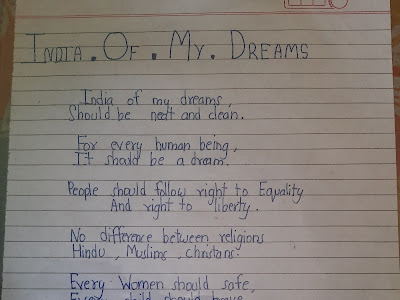 INDIA . OF . MY . DREAMS
India of my dreams,
Should be neat and clean.
For every human being,
It should be a dream.
People should follow right to Equality
And right to liberty.
No difference between religions
Hindu, Muslims, christans.
Every Women should safe,
Every child should brave